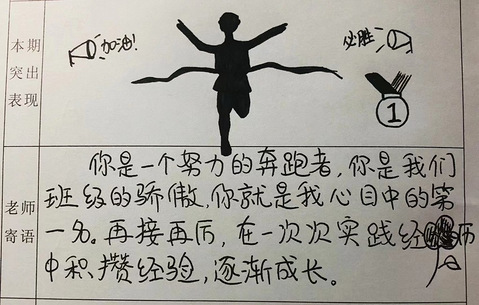 本期
突出
表现
加油!
必胜
1
老师
寄语
你是一个努力的奔跑者,你是我们
班级的骄傲,你就是我心目中的第
一名。再接再厉,在一次次实践经历
中积攒经验,逐渐成长。